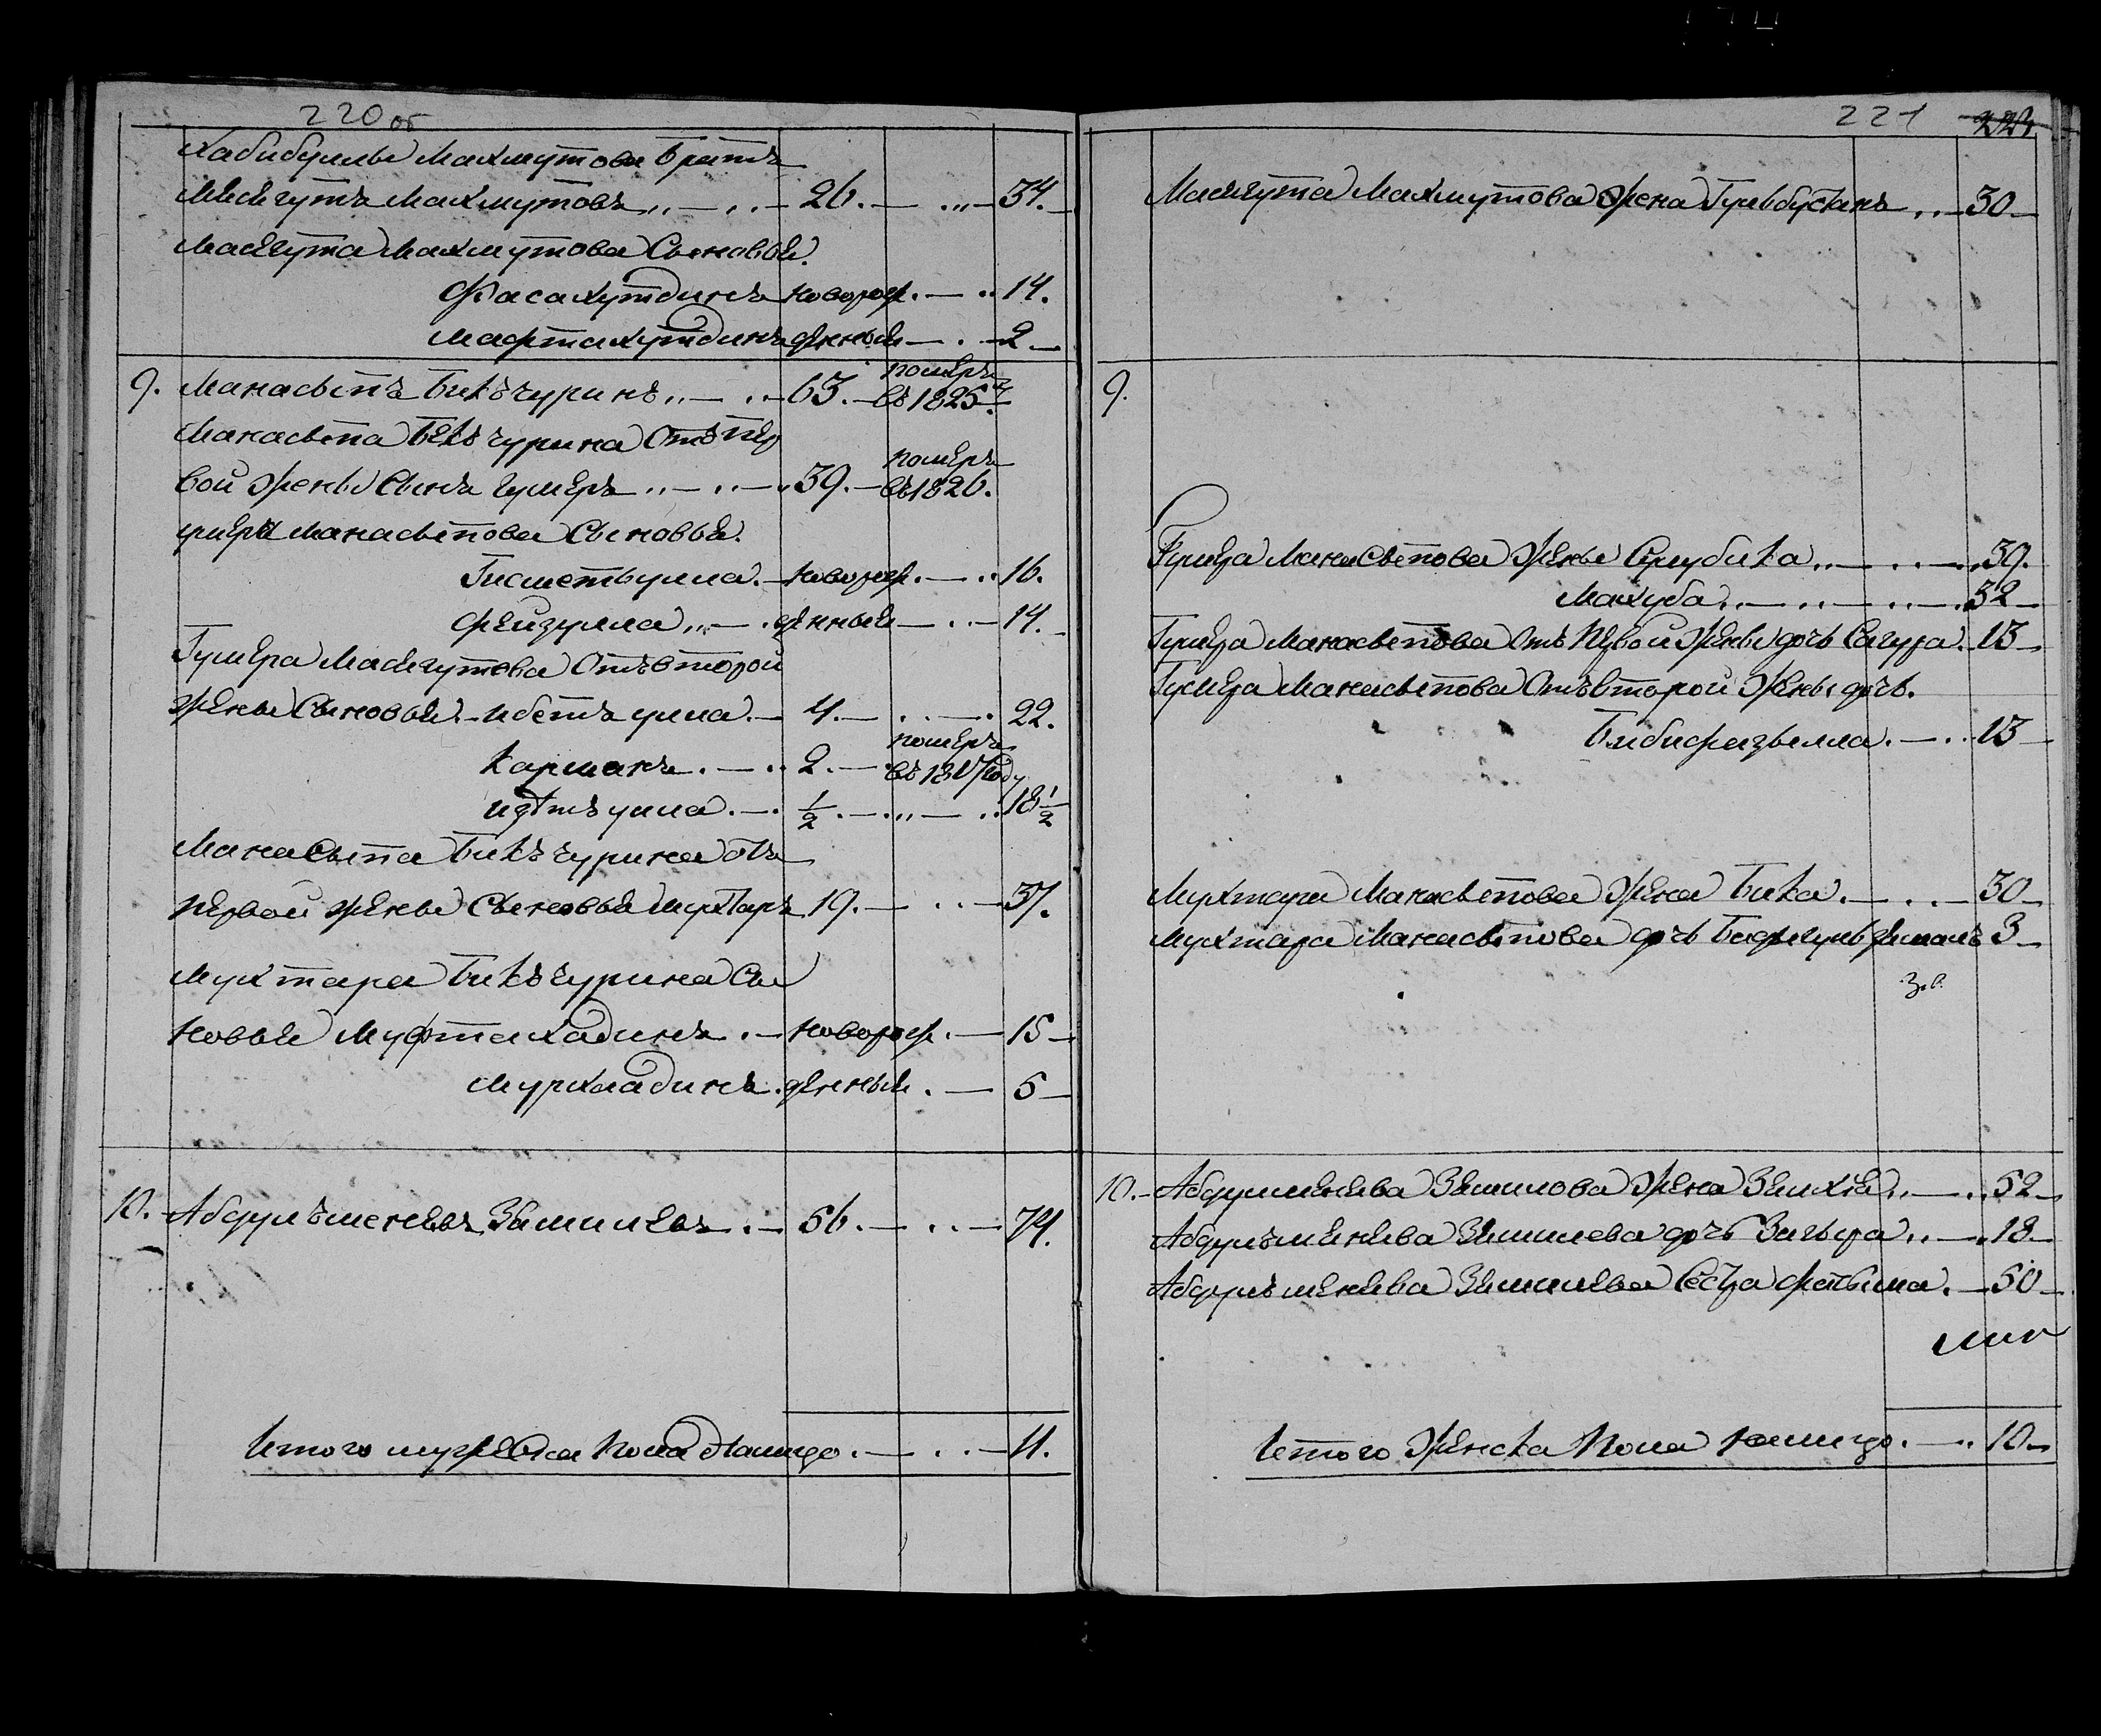 220 об
Хабибуллы Махмутова братъ
Масягутъ Махмутовъ 26. 34.
Масягута Махмутова Сыновья.
Фасахутдинъ новорож. 14.
Мафтахутдинъ денныя 2
9. Манасыпъ Бикъчуринъ 63. померъ въ 1825
Манасыпа Бикъчурина Отъ пер
вой жены Сынъ Гумеръ 39. померъ въ 1826.
гумера Манасыпова Сыновья.
Гисметъулла. новорож. 16.
Фейзулла денныя 14.
Гумера Масягутова Отъ второй
жены Сыновья. Ибетъулла. 4. 22.
Карманъ 2. померъ въ 1817 году
Идѣтъулла. 1/2 18 1/2
Манасыпа Бикъчурина отъ
первой жены Сыновья Мухтаръ 19. 37.
Мухтара Бикъчурина Сы
новья Муфтахадинъ новорож. 15
Мурхладинъ денныя. 5
10. Абдулъменевъ Замилевъ 56. 74.
Итого мужеска пола налицо. 11.
221
Масягута Махмутова жена Гульбустанъ 30
9.
Гумера Манасыпова жены Сулубика 39.
Махуба 32
Гумера Манасыпова Отъ первой жены дочь Сагура. 13
Гумера Манасыпова Отъ второй жены дочь.
Бибифазылла. 13
Мухтара Манасыпова жена Бика. 30
Мухтара Манасыпова дочь Бадигульжамалъ 3
10. Абдулменева Замилова жена Залихя 52
Абдулъменева Замилева дочь Загыра 18
Абдулъменева Замилева Сестра Фатыма. 50
Итого женска пола налицо. 10